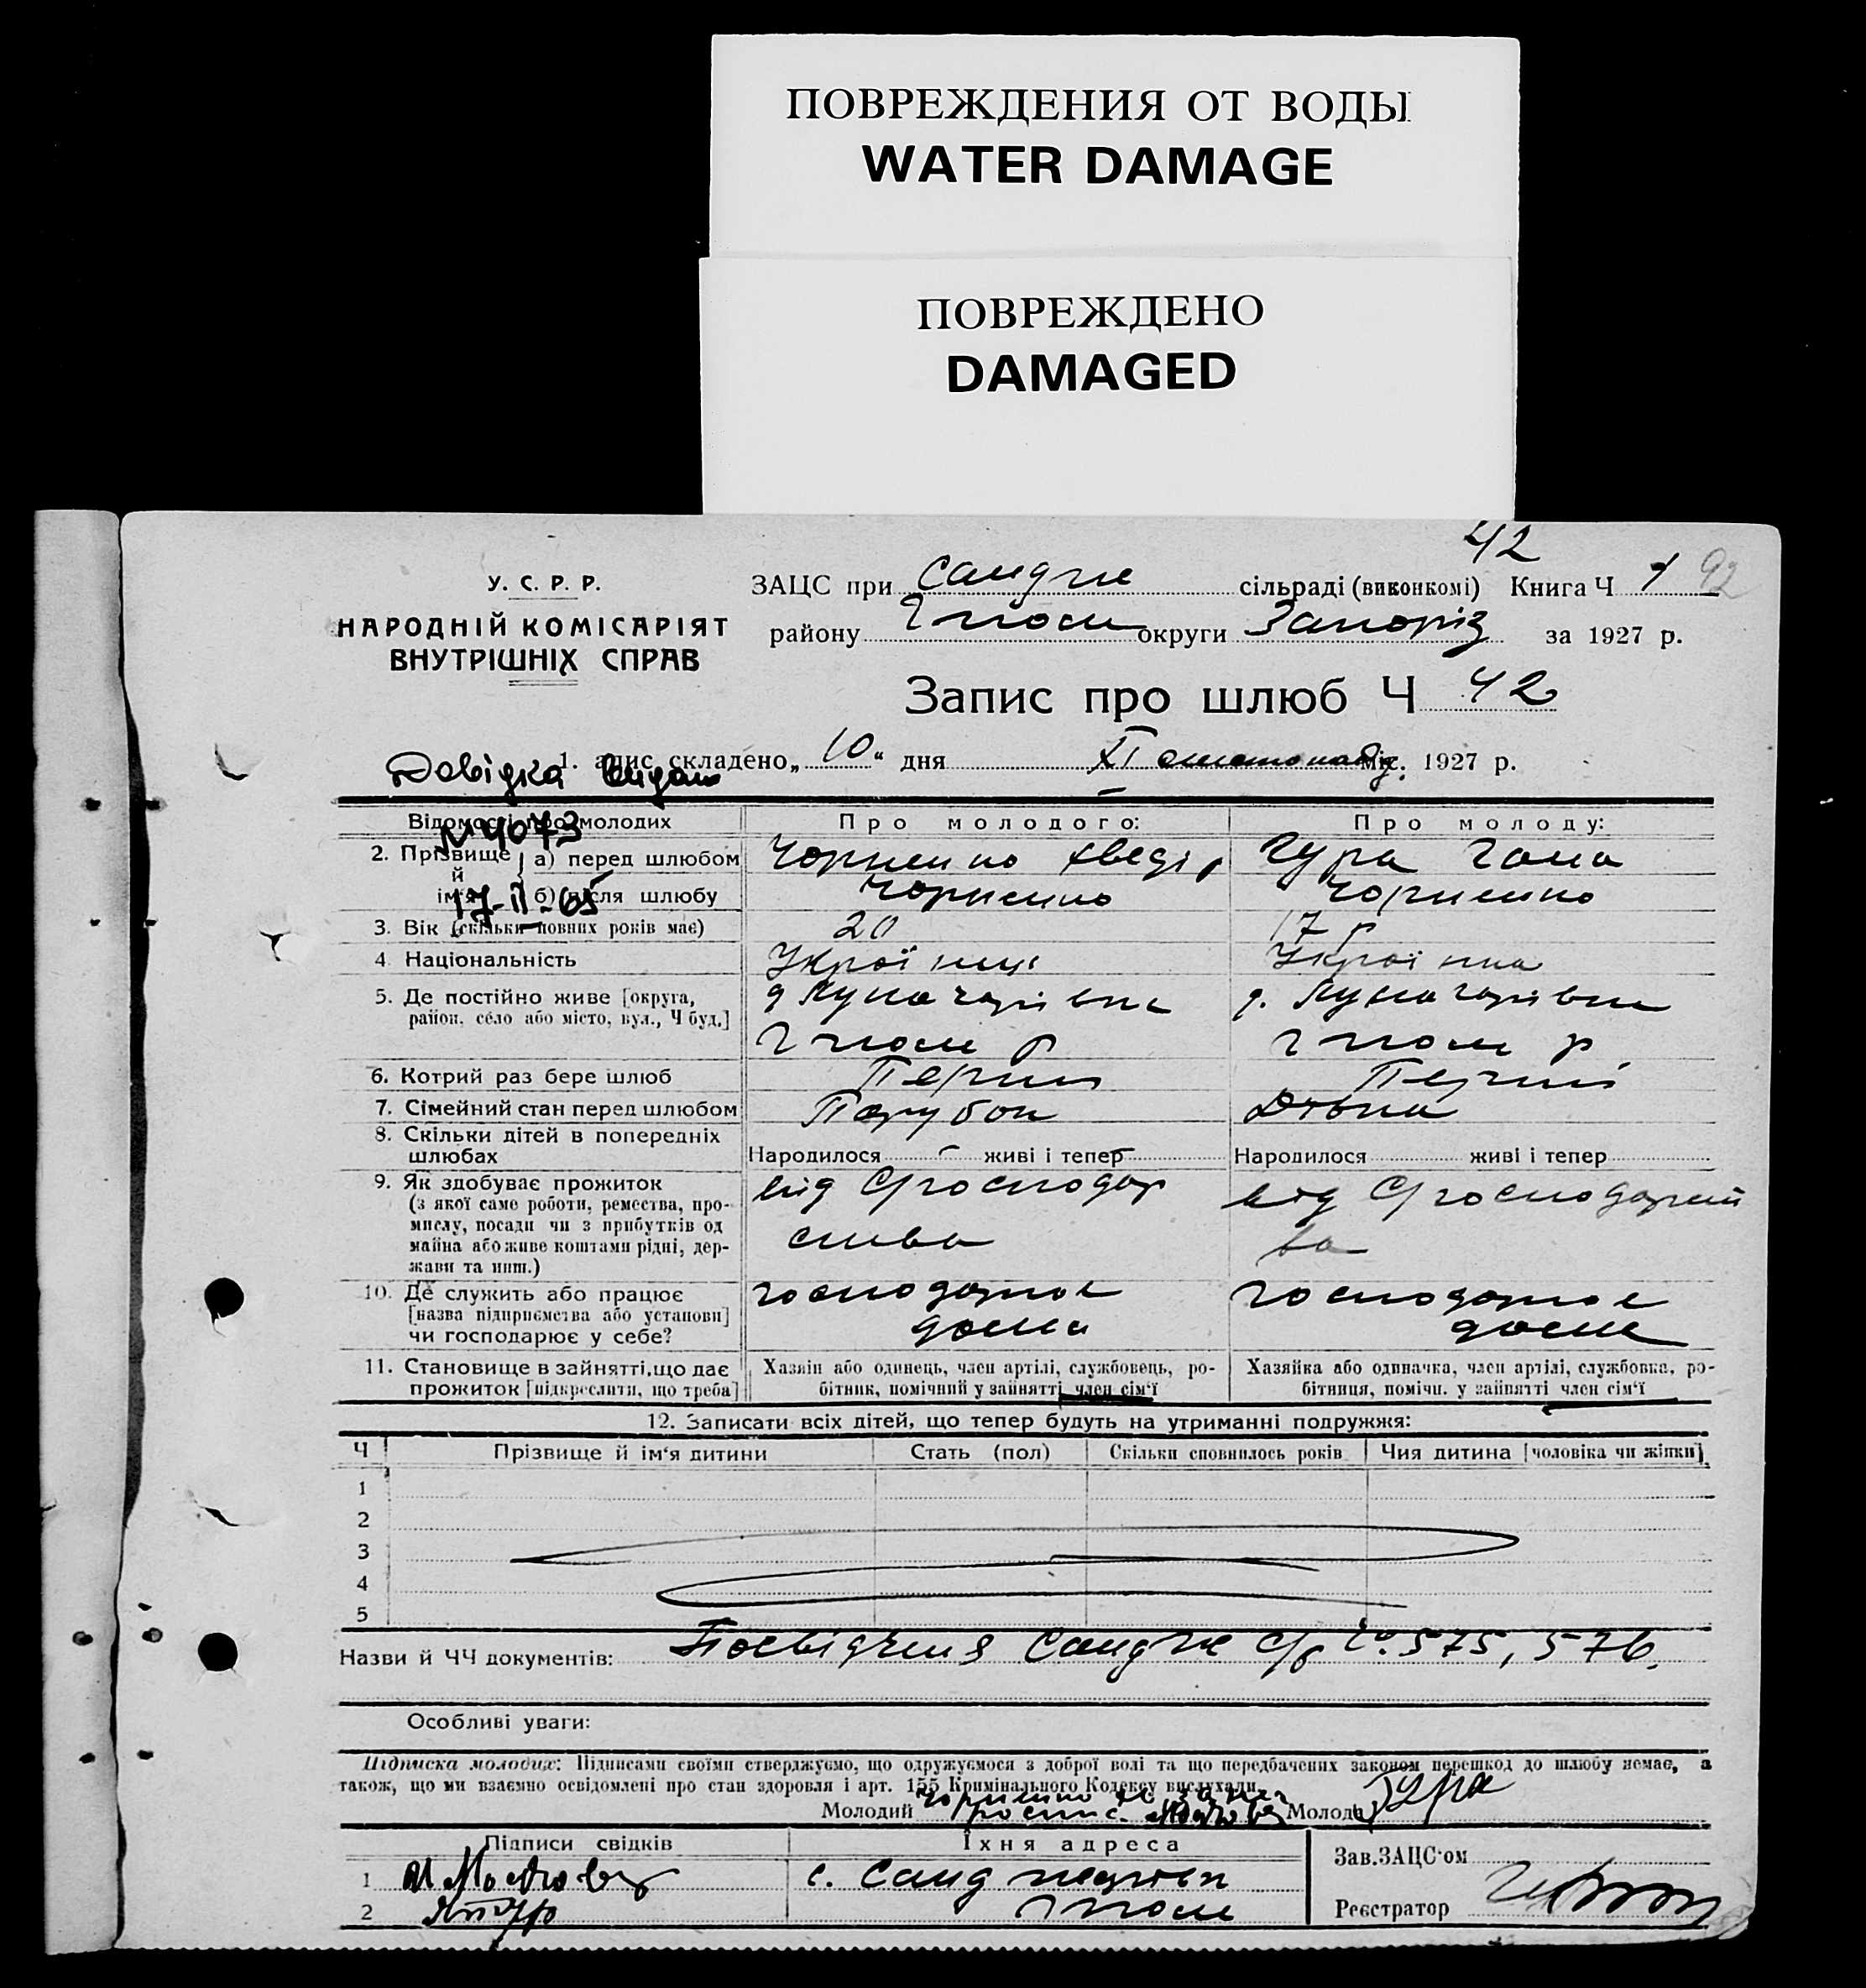 ПОВРЕЖДЕНИЯ ОТ ВОДЫ
WATER DAMAGE
ПОВРЕЖДЕНО
DAMAGED
42
92
У. С. Р. Р.
НАРОДНІЙ КОМІСАРІЯТ
ВНУТРІШНІХ СПРАВ
ЗАЦС при сільраді (виконкомі) Книга Ч 1
району округи Запоріз за 1927 р.
Запис про шлюб Ч 42
1. апис складено „10“ дня XI міс. 1927 р.
Довідка видана
№ 4073
17-II-65
Відомості про молодих Про молодого: Про молоду:
2. Прізвище й ім'я а) перед шлюбом Чорненко Хведір Гура Гана
б) після шлюбу Чорненко Чорненко
3. Вік (скільки повних років має) 20 17 р
4. Національність Українец Українка
5. Де постійно живе [округа, район, село або місто, вул., Ч буд.] Луначарівка Луначарівка
6. Котрий раз бере шлюб Перший Перший
7. Сімейний стан перед шлюбом Парубок Дівка
8. Скільки дітей в попередніх шлюбах Народилося - живі і тепер - Народилося живі і тепер
9. Як здобуває прожиток
(з якої саме роботи, ремества, про-
мислу, посади чи з прибутків од
майна або живе коштами рідні, дер-
жави та инш.)
від С/господар
ства
від С/господарст
ва
10. Де служить або працює
[назва підприємства або установи]
чи господарює у себе?
господарює
дома
господарює
дома
11. Становище в зайнятті, що дає
прожиток [підкреслити, що треба]
Хазяін або одинець, член артілі, службовець, ро-
бітник, помічний у зайнятті член сім'ї
Хазяйка або одиначка, член артілі, службовка, ро-
бітниця, помічн. у зайнятті член сім'ї
12. Записати всіх дітей, що тепер будуть на утриманні подружжя:
Ч Прізвище й ім'я дитини Стать (пол) Скільки сповнилось років Чия дитина [чоловіка чи жінки]
1
2
3
4
5
Назви й ЧЧ документів: Посвідченя с/р 575, 576.
Особливі уваги:
Підписка молодих: Підписами своїми стверджуємо, що одружуємося з доброї волі та що передбачених законом перешкод до шлюбу немає, а
також, що ми взаємно освідомлені про стан здоровля і арт. 155 Кримінального Кодексу вислухали.
Молодий Чорненко Молода Гура
Підписи свідків Їхня адреса Зав. ЗАЦС'ом
1 с.
2
Реєстратор